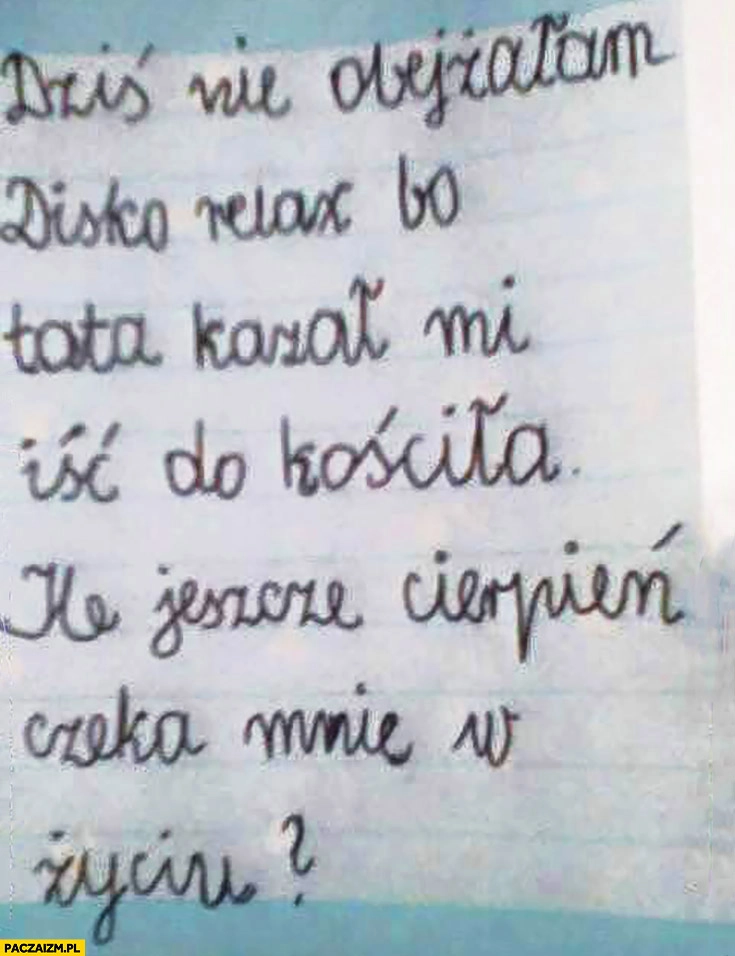 Dziś nie obejżałam
Disko relax bo
tata kazał mi
iść do kościła.
Ile jeszcze cierpień
czeka mnie w
życiu?
PACZAIZM.PL